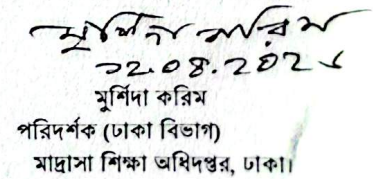 মুর্শিদা করিম
১২.০৪.২০২১
মুর্শিদা করিম
পরিদর্শক (ঢাকা বিভাগ)
মাদ্রাসা শিক্ষা অধিদপ্তর, ঢাকা।